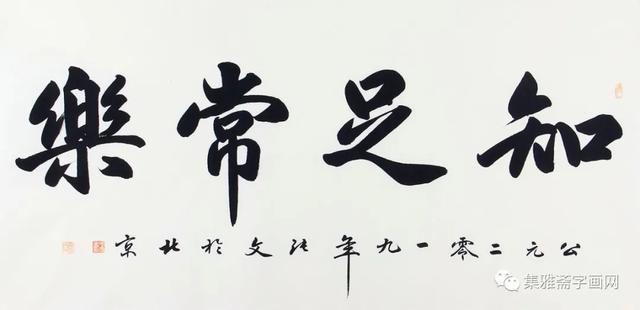 知足常樂
公元二零一九年張文於北京
集雅斋字画网